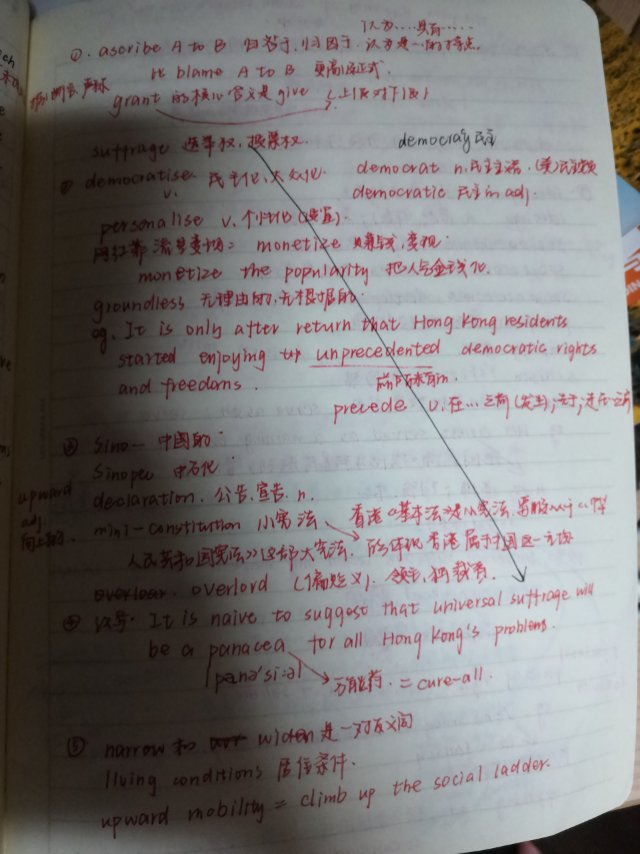 认为……具有……
①. ascribe A to B 归咎于,归因于. 认为是…的特点.
比 blame A to B 更高级正式.
声称
grant 的核心含义是 give (上级对下级)
suffrage 选举权,投票权. democracy 民主
② democratise. 民主化,大众化. democrat n.民主主义者,(美)民主党
v. democratic 民主的 adj.
personalise v.个性化(设置).
网红靠流量变现: monetize 变现.
monetize the popularity 把人气金钱化.
groundless 无理由的,无根据的.
eg. It is only after return that Hong Kong residents
started enjoying unprecedented democratic rights
and freedoms. 前所未有的.
precede v.在…之前(发生),先于,走在…前
③ Sino- 中国的.
Sinopec 中石化.
upward
adj.
向上的
declaration. 公告,宣告. n.
mini-constitution 小宪法 香港《基本法》是小宪法,
人民共和国宪法》这部大宪法. 香港属于中国这一
overlord (偏贬义). 领主,独裁者.
④ 仿写. It is naive to suggest that universal suffrage will
be a panacea for all Hong Kong's problems.
|pænə'si:ə| 万能药. = cure-all.
⑤ narrow 和 widen 是一对反义词
living conditions 居住条件.
upward mobility = climb up the social ladder.